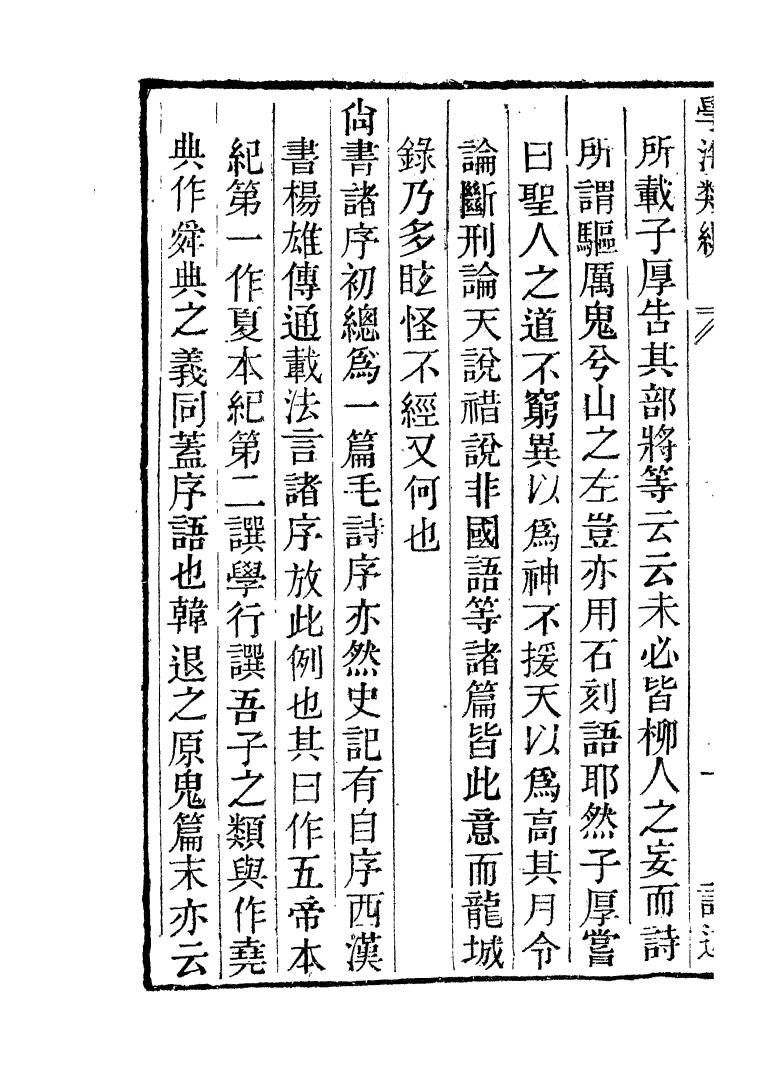 學海類編 一
所載子厚告其部將等云云未必皆柳人之妄而詩
所謂驅厲鬼兮山之左豈亦用石刻語耶然子厚嘗
曰聖人之道不窮異以爲神不援天以爲高其月令
論斷刑論天說䄍說非國語等諸篇皆此意而龍城
錄乃多眩怪不經又何也
尙書諸序初總爲一篇毛詩序亦然史記有自序西漢
書楊雄傳通載法言諸序放此例也其曰作五帝本
紀第一作夏本紀第二譔學行譔吾子之類與作堯
典作舜典之義同蓋序語也韓退之原鬼篇末亦云